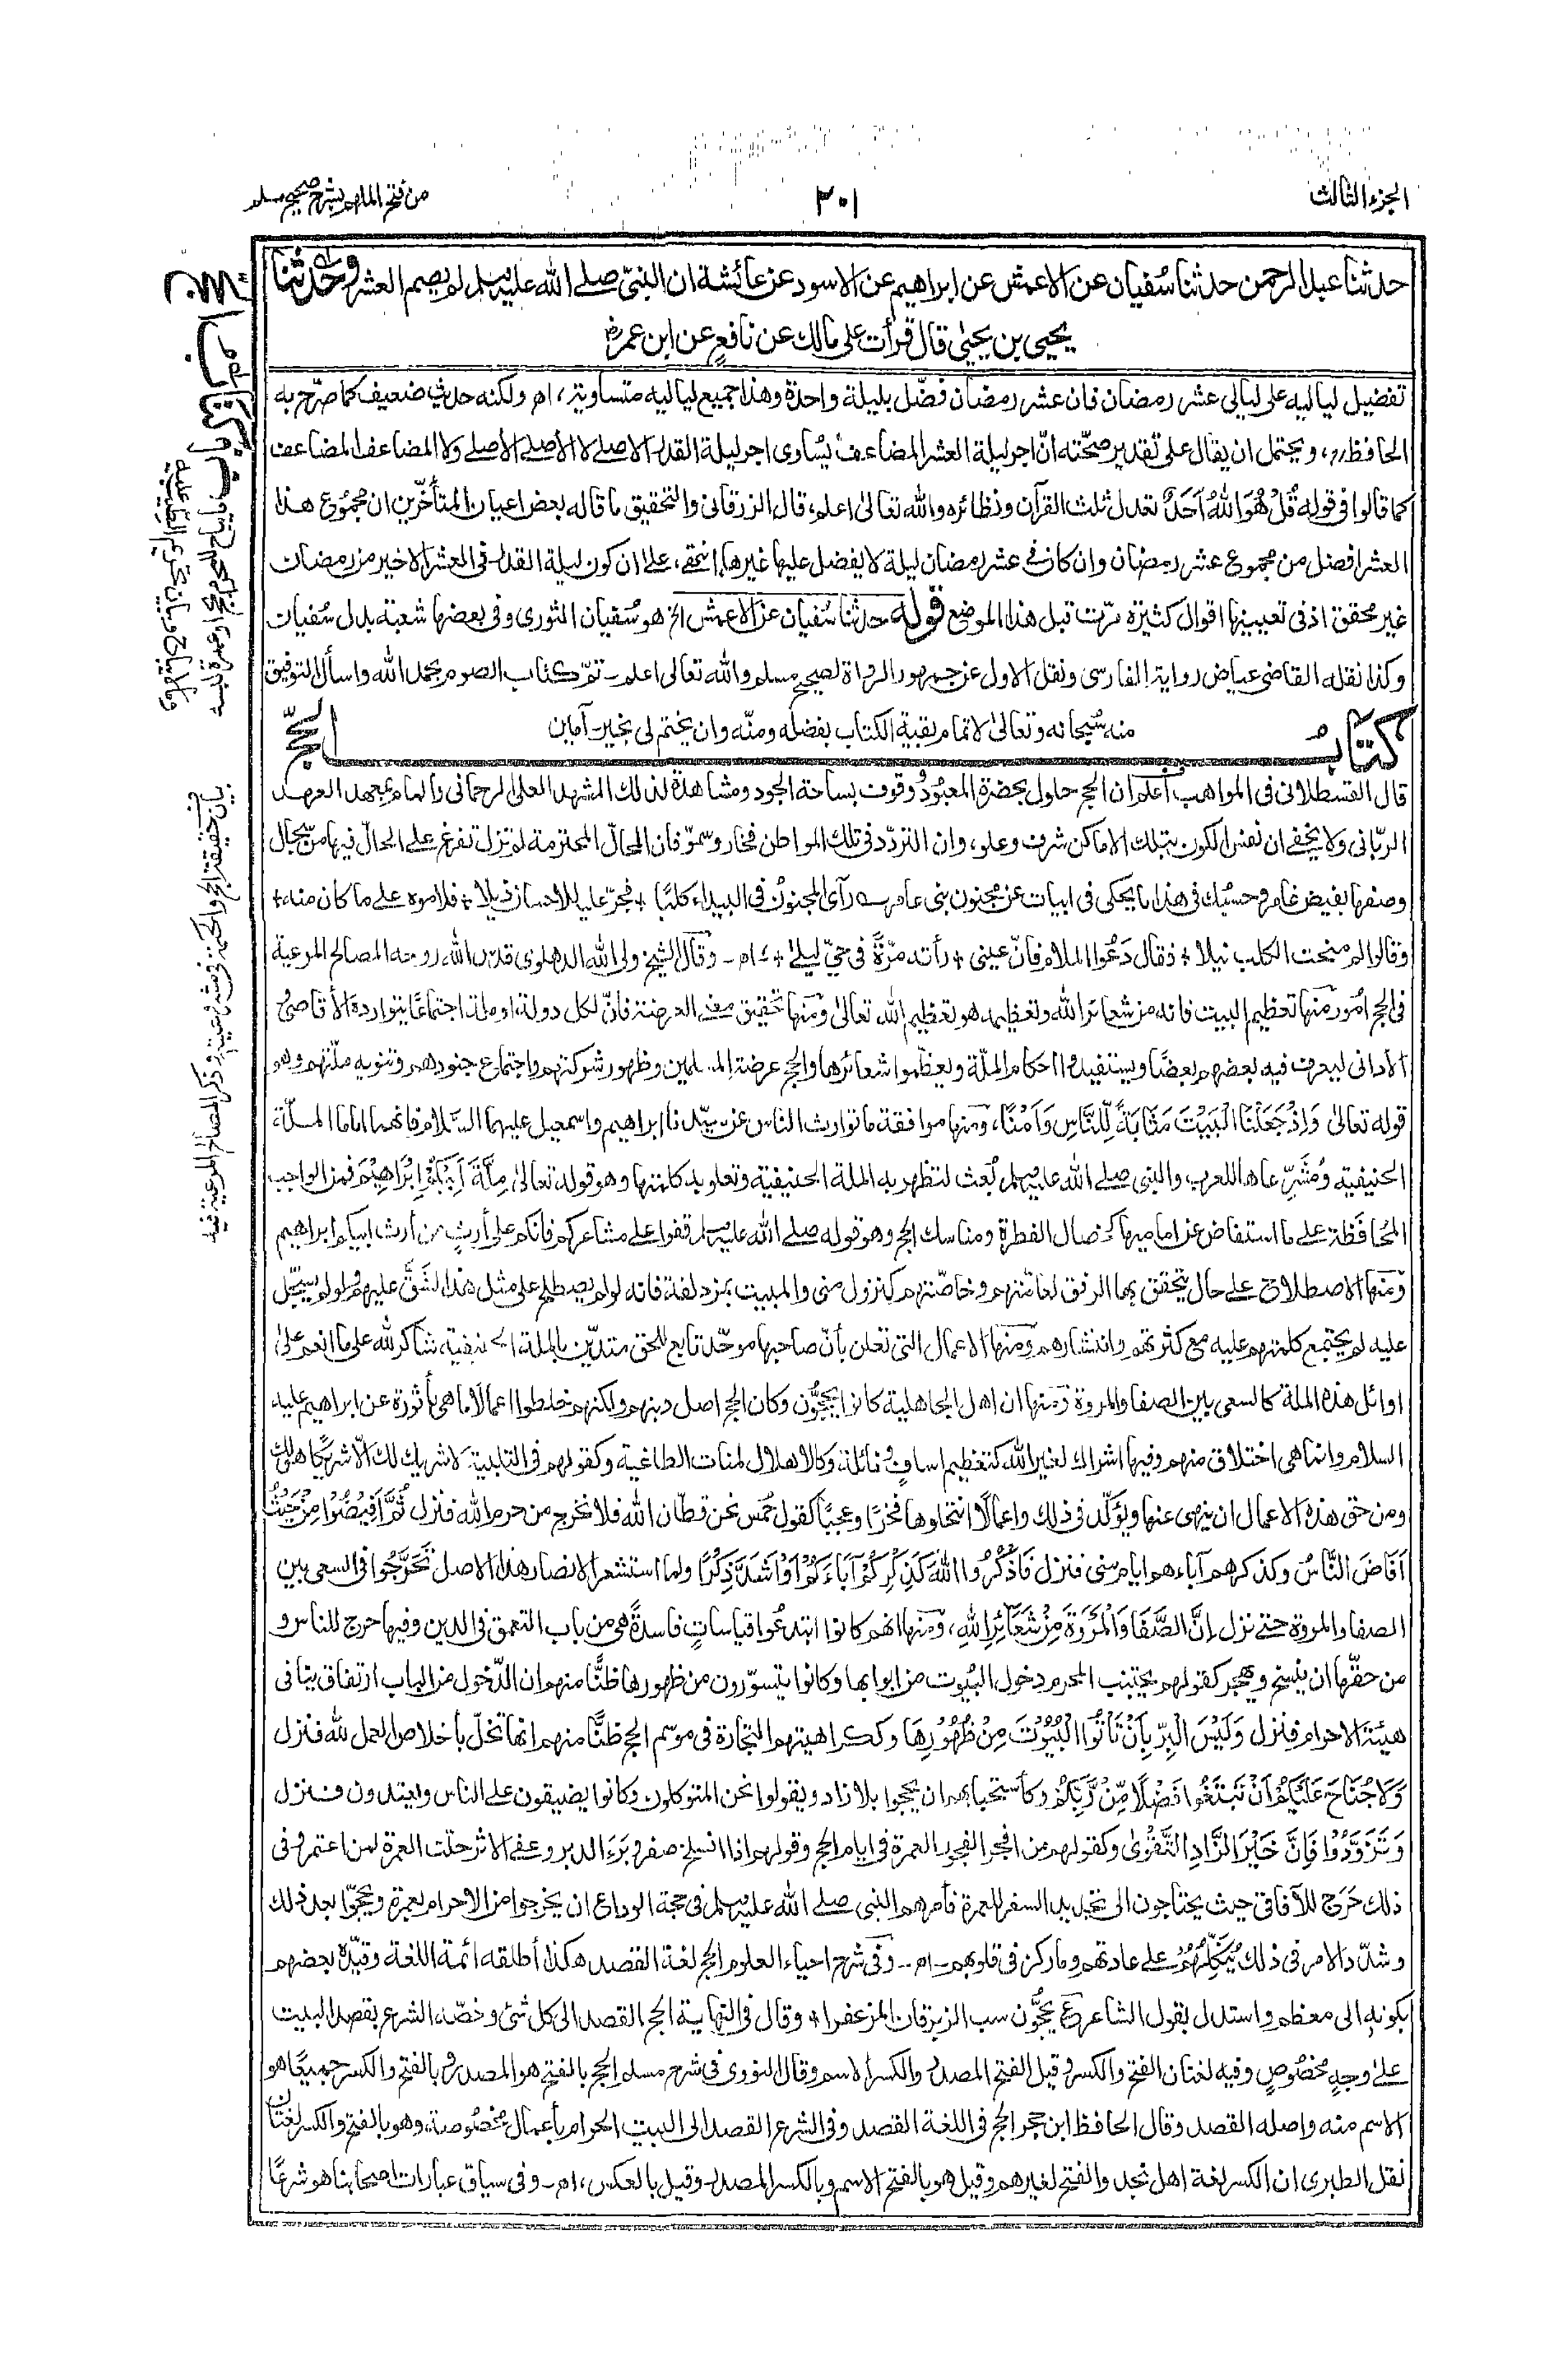 الجزء الثالث
٣٠١
من فتح الملهم بشرح صحيح مسلم
حدثنا عبد الرحمن حدثنا سفيان عن الاعمش عن ابراهيم عن الاسود عن عائشة ان النبي صلى الله عليه وسلم لم يصم العشر وحدثنا
يحيى بن يحيى قال قرأت على مالك عن نافع عن ابن عمر رضـ
تفضيل لياليه على ليالى عشر رمضان فان عشر رمضان فضّل بليلة واحدة وهذا جميع لياليه متساوية، اهـ ولكنه حديث ضعيف كما صرّح به
الحافظ رح، ويحتمل ان يقال على تقدير صحّته انّ اجر ليلة العشر المضاعف يُساوى اجر ليلة القدر الاصلے لا الأصلے الأصلے ولا المضاعف المضاعف
كما قالوا فى قوله قُلْ هُوَ اللهُ اَحَدٌ تعدل ثلث القرآن ونظائره والله تعالىٰ اعلم، قال الزرقانى والتحقيق ما قاله بعض اعيان المتأخّرين ان مجموع هذا
العشر افضل من مجموع عشر رمضان وان كان فى عشر رمضان ليلة لا يفضل عليها غيرها، انتهى، علے ان كون ليلة القدر فى العشر الاخير من رمضان
غير محقق اذ فى تعيينها اقوال كثيرة مرّت قبل هذا الموضع قوله حدثنا سُفيان عن الاعمش الخ هو سُفيان الثورى وفى بعضها شعبة بدل سُفيان
وكذا نقله القاضى عياض رواية الفارسى ونقل الاول عن جمهور الرواة لصحيح مسلم والله تعالى اعلم ـ تمّ كتاب الصوم بحمد الله واسأل التوفيق
منه سُبحانه وتعالىٰ لاتمام بقية الكتاب بفضله ومنّه وان يختم لى بخير ـ آمين
كتاب الحجّ
قال القسطلانى فى المواهب اعلم ان الحج حلول بحضرة المعبُود ووقوف بساحة الجود ومشاهدة لذلك المشهد العلىّ الرحمانى والمام بمعهد العهد
الربّانى ولا يخفى ان نفس الكون بتلك الاماكن شرف وعلو، وان التردّد فى تلك المواطن فخار وسموّ فان المحالّ المحترمة لم تزل تفرغ على الحالّ فيها من سجال
وصفها بفيض غامر وحسبك فى هذا ما يحكى فى ابيات عن مجنون بنى عامر ــ رأى المجنون فى البيداء كلبًا + فجرّ عليه للاحسان ذيلا + فلاموه على ما كان منه +
وقالوا لم منحت الكلب نيلا + فقال دَعُوا الملام فانّ عينى + رأته مرّةً فى حىّ ليلىٰ + اهـ ـ وقال الشيخ ولى الله الدهلوى قدّس الله روحه المصالح المرعية
فى الحج امُور منها تعظيم البيت فانه من شعائر الله وتعظيمه هو تعظيم الله تعالىٰ ومنها تحقيق معنى العرضة فانّ لكل دولة او ملة اجتماعًا يتوارده الأقاصى و
الأدانى ليعرف فيه بعضهم بعضًا ويستفيدوا احكام الملّة ويعظّموا شعائرها والحج عرضة المسلمين وظهور شوكتهم واجتماع جنودهم وتنويه ملّتهم وهو
قوله تعالىٰ وَاِذْ جَعَلْنَا الْبَيْتَ مَثَابَةً لِّلنَّاسِ وَاَمْنًا، ومنها موافقة ما توارث الناس عن سيّدنا ابراهيم واسمعيل عليهما السّلام فانهما اماما الملّة
الحنيفية ومُشَرِّعاها للعرب والنبى صلے الله عليه وسلم بُعث لتظهر به الملة الحنيفية وتعلو به كلمتها وهو قوله تعالىٰ مِلَّةَ اَبِيْكُمْ اِبْرَاهِيْمَ فمن الواجب
المُحافَظة على ما استفاض عن اماميها كخصال الفطرة ومناسك الحج وهو قوله صلے الله عليه وسلم قفوا على مشاعركم فانكم على أرث من أرث ابيكم ابراهيم
ومنها الاصطلاح على حال يتحقق بها الرفق لعامّتهم وخاصّتهم كنزول منى والمبيت بمزدلفة فانه لو لم يصطلح على مثل هذا لشقّ عليهم ولو لم يسجّل
عليه لم يجتمع كلمتهم عليه مع كثرتهم وانتشارهم ومنها الاعمال التى تعلن بأنّ صاحبها موحّد تابع للحق متديّن بالملة الحنيفية شاكر لله على ما انعم علىٰ
اوائل هذه الملة كالسعى بين الصفا والمروة ومنها ان اهل الجاهلية كانوا يحجّون وكان الحج اصل دينهم ولكنهم خلطوا اعمالًا ما هى مأثورة عن ابراهيم عليه
السلام وانما هى اختلاق منهم وفيها اشراك لغير الله كتعظيم اساف ونائلة، وكالاهلال لمنات الطاغية وكقولهم فى التلبية لا شريك لك الّا شريكًا هو لك
ومن حق هذه الاعمال ان ينهى عنها ويؤكّد فى ذلك واعمالًا انتحلوها فخرًا وعجبًا كقول حُمس نحن قطّان الله فلا نخرج من حرم الله فنزل ثُمَّ اَفِيْضُوْا مِنْ حَيْثُ
اَفَاضَ النَّاسُ وكذكرهم آباءهم ايام منى فنزل فَاذْكُرُوا اللهَ كَذِكْرِكُمْ آبَاءَكُمْ اَوْ اَشَدَّ ذِكْرًا ولما استشعر الانصار هذا الاصل تَحَرَّجُوا فى السعى بين
الصفا والمروة حتى نزل اِنَّ الصَّفَا وَالْمَرْوَةَ مِنْ شَعَآئِرِ اللهِ، ومنها انهم كانوا ابتدعُوا قياساتٍ فاسدةً هى من باب التعمق فى الدين وفيها حرج للناس و
من حقّها ان ينسخ ويهجر كقولهم يجتنب المحرم دخول البُيُوت من ابوابها وكانوا يتسوّرون من ظهورها ظنًّا منهم ان الدّخول من الباب ارتفاق ينافى
هيئة الاحرام فنزل وَلَيْسَ الْبِرُّ بِاَنْ تَأْتُوا الْبُيُوْتَ مِنْ ظُهُوْرِهَا وككراهيتهم التجارة فى موسم الحج ظنًّا منهم انها تخلّ بأخلاص العمل لله فنزل
وَلَا جُنَاحَ عَلَيْكُمْ اَنْ تَبْتَغُوا فَضْلًا مِّنْ رَّبِّكُمْ وكأستحبابهم ان يحجوا بلا زاد ويقولوا نحن المتوكلون وكانوا يضيقون على الناس ويعتدون فنزل
وَتَزَوَّدُوْا فَاِنَّ خَيْرَ الزَّادِ التَّقْوٰى وكقولهم من افجر الفجور العمرة فى ايام الحج وقولهم اذا انسلخ صفر وبَرَءَ الدبر وعفا الاثر حلّت العمرة لمن اعتمر وفى
ذلك حَرَج للآفاقى حيث يحتاجون الى تجديد السفر للعمرة فأمرهم النبى صلے الله عليه وسلم فى حجة الوداع ان يخرجوا من الاحرام بعمرة ويحجّوا بعد ذلك
وشدّد الامر فى ذلك يُنَكِّلُهُمْ على عادتهم وما ركز فى قلوبهم ـ اهـ ـ وفى شرح احياء العلوم الحج لغة القصد هكذا أطلقه ائمة اللغة وقيّده بعضهم
بكونه الى معظم واستدل بقول الشاعر ع يحجّون سب الزبرقان المزعفرا + وقال فى النهاية الحج القصد الى كل شئ وخصّه الشرع بقصد البيت
علىٰ وجهٍ مخصُوصٍ وفيه لغتان الفتح والكسر وقيل الفتح المصدر والكسر الاسم وقال النووى فى شرح مسلم الحج بالفتح هو المصدر وبالفتح والكسر جميعًا هو
الاسم منه واصله القصد وقال الحافظ ابن حجر الحج فى اللغة القصد وفى الشرع القصد الى البيت الحرام بأعمال مخصُوصة، وهو بالفتح والكسر لغتان
نقل الطبرى ان الكسر لغة اهل نجد والفتح لغيرهم وقيل هو بالفتح الاسم وبالكسر المصدر وقيل بالعكس، اهـ ـ وفى سياق عبارات اصحابنا هو شرعًا
كتاب الحج
باب ما يباح للمحرم بحج او عمرة لبسه
وما لا يباح وبيان تحريم الطيب عليه
بيان حقيقة الحج والحكمة فى مشروعيته وذكر المصالح المرعية فيه